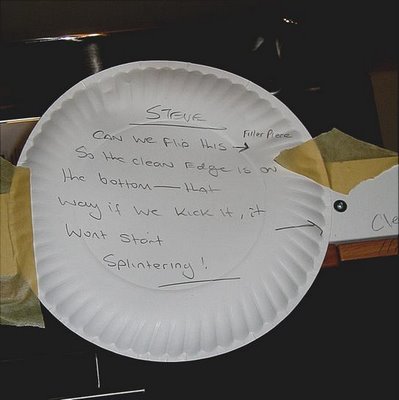 STEVE
CAN WE Flip THIS → Filler Piece
So the clean EDGE is on
the bottom — that
way if we kick it, it
Wont start
Splintering!
Cle